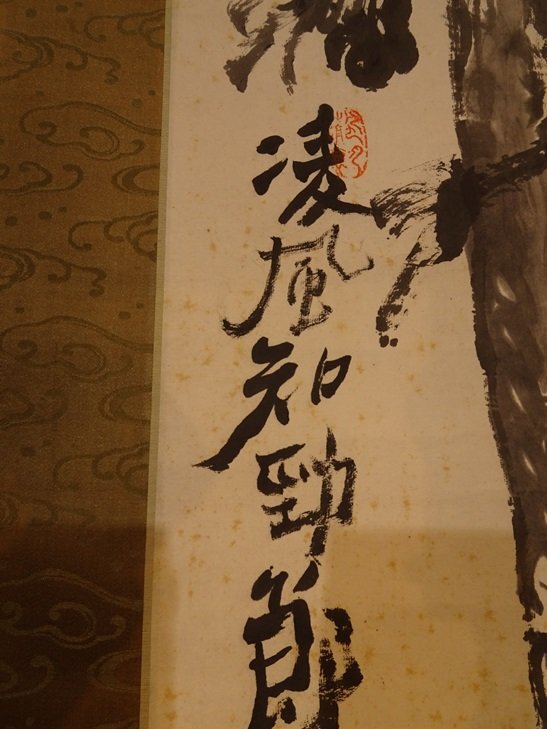 凌風知勁節